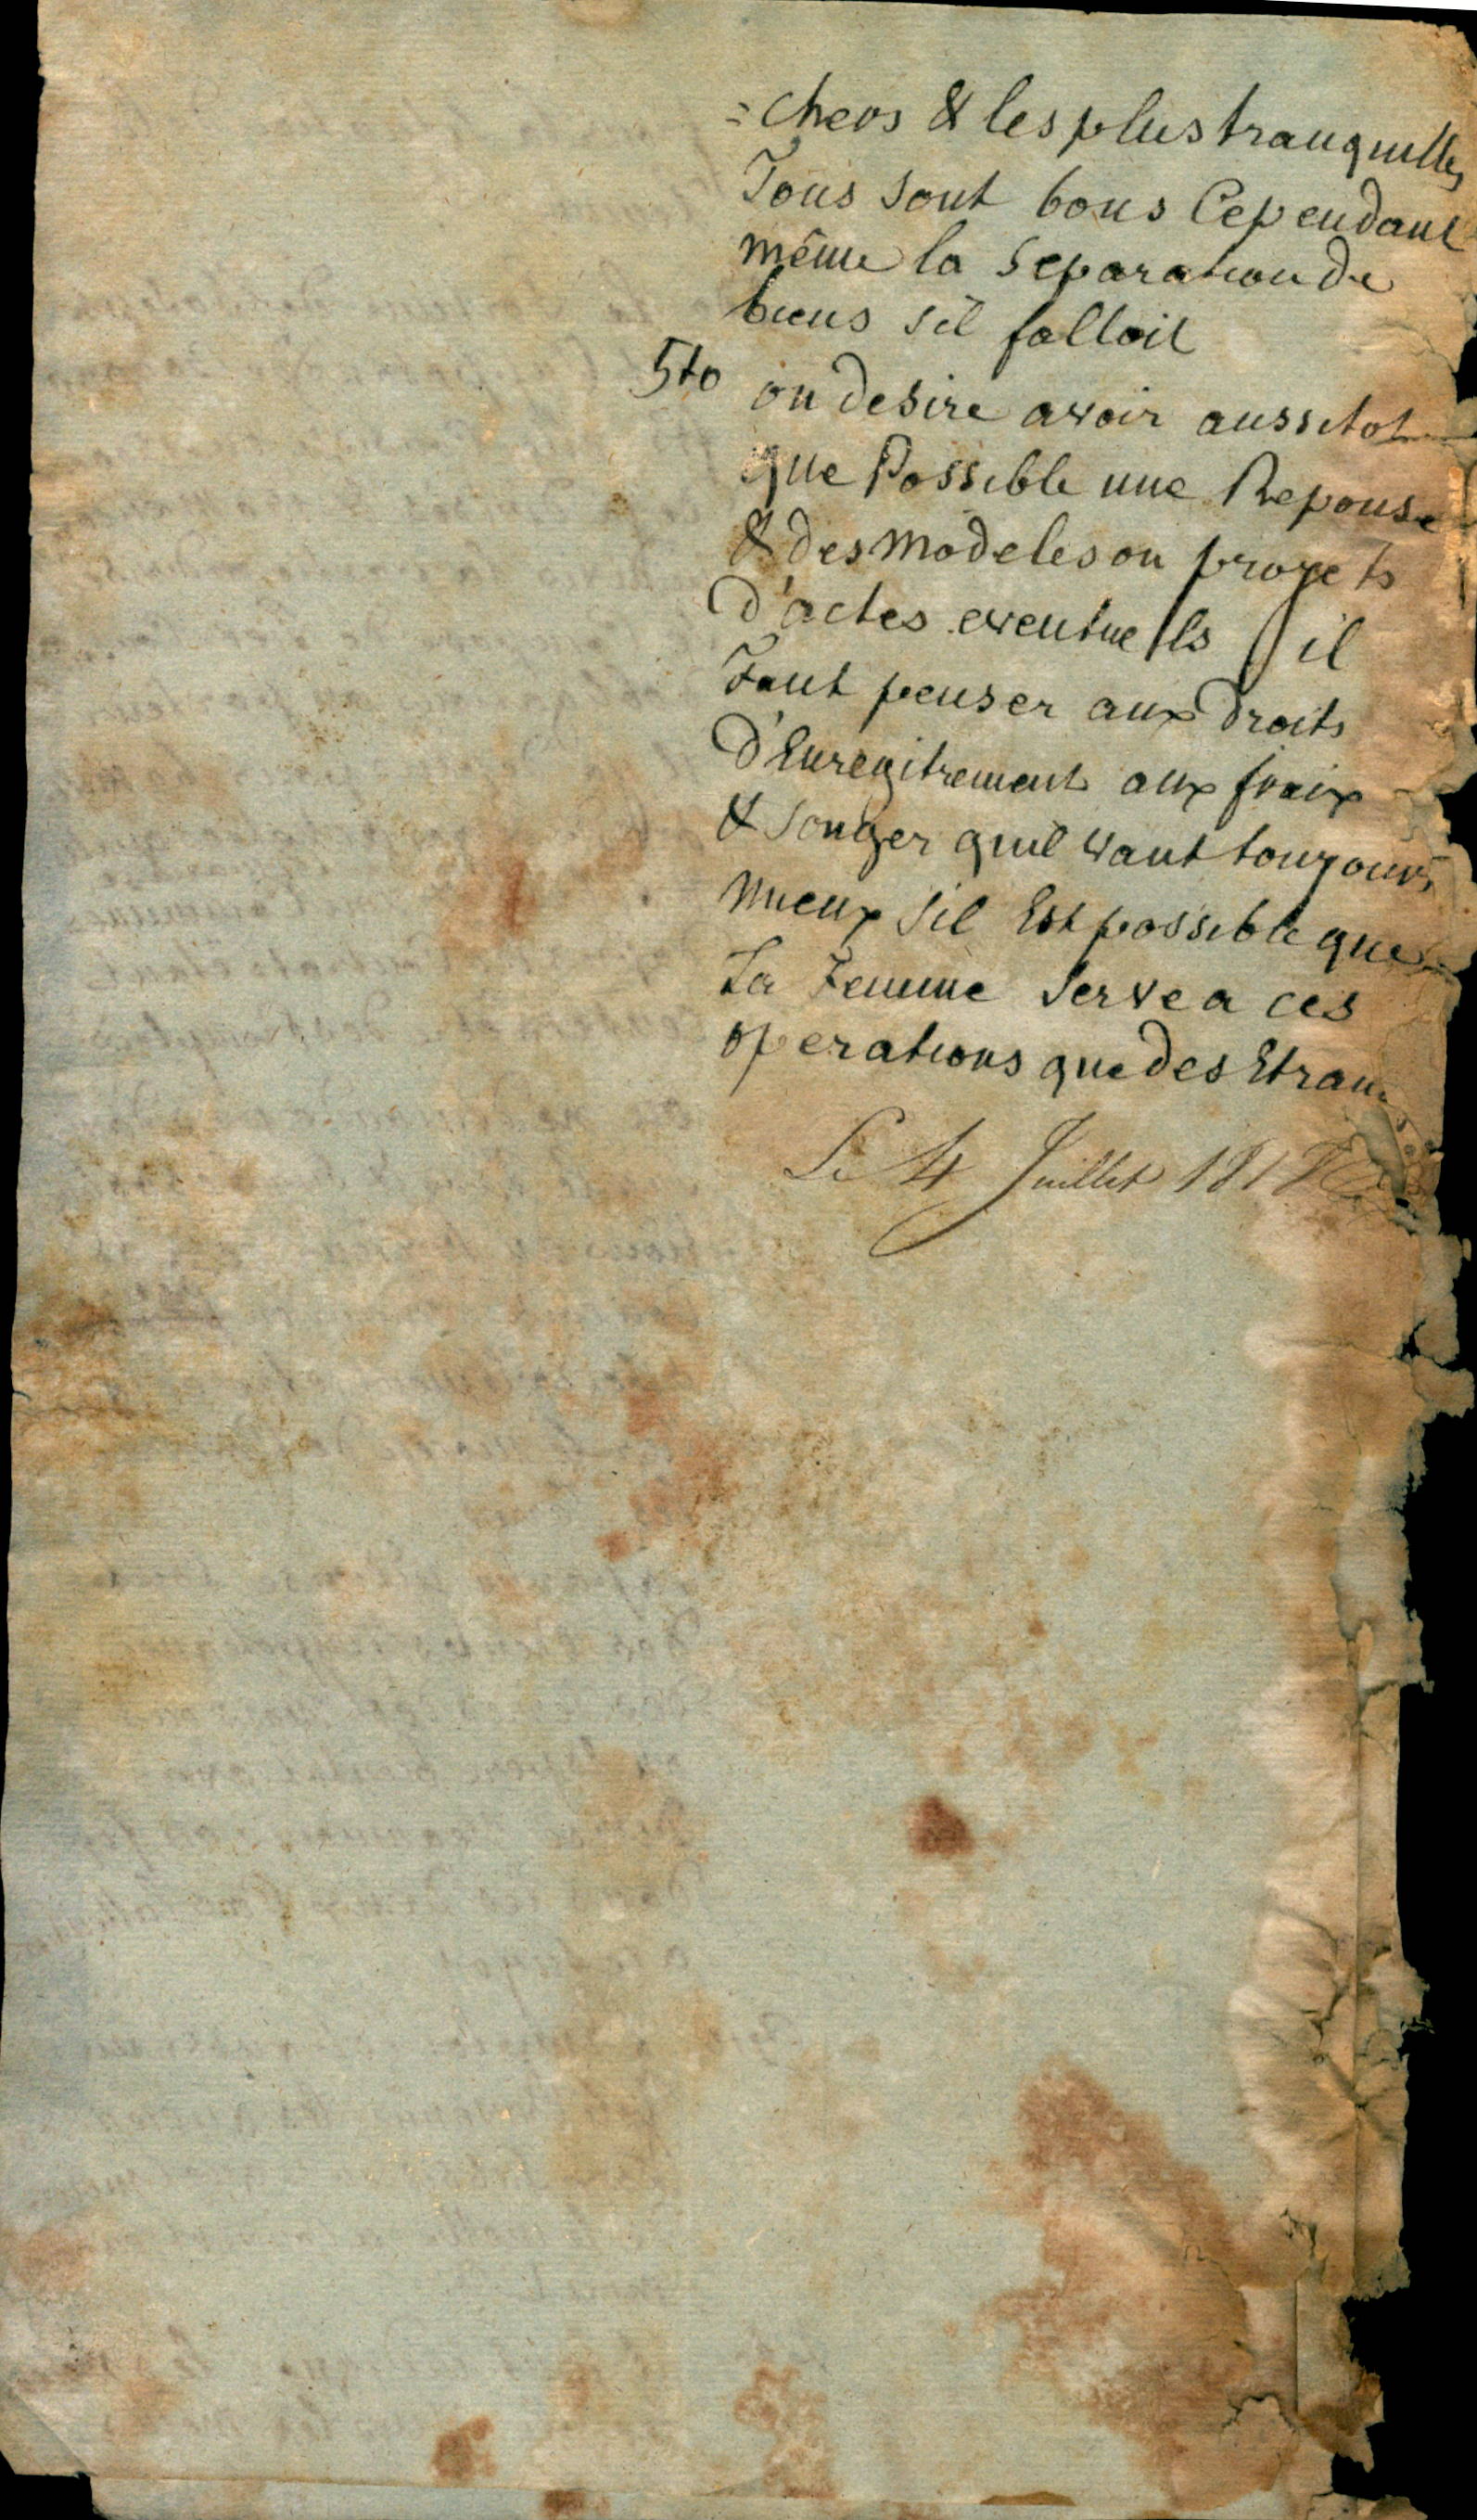 =chers & les plus tranquilles
Tous sont bons Cependant
même la Separation de
biens sil falloit
5to on desire avoir aussitot
que Possible une Reponse
& des modeles ou projets
d'actes eventuells il
Faut penser aux droits
d'Enregitrement aux fraix
& songer quil vaut toujours
mieux sil Est possible que
La Femme serve a ces
operations que des Etran
Le 4 Juillet 181